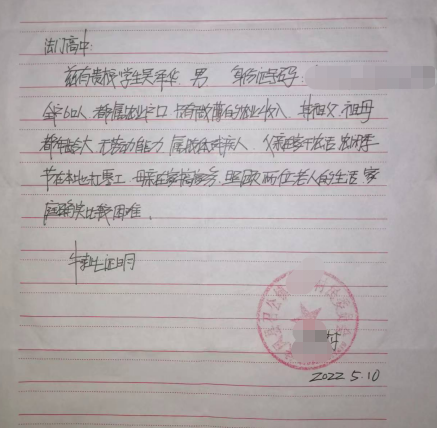 法门高中:
兹有贵校学生吴年华 男 身份证号码:
全家6口人 都属农业户口 只有微薄的农业收入 其祖父、祖母
都年龄大 无劳动能力 属肢体残疾人 父亲在家务农 农闲季
节在本地打零工 母亲在家 照顾两位老人的生活 家
庭确实比较困难。
特此证明
村
2022.5.10